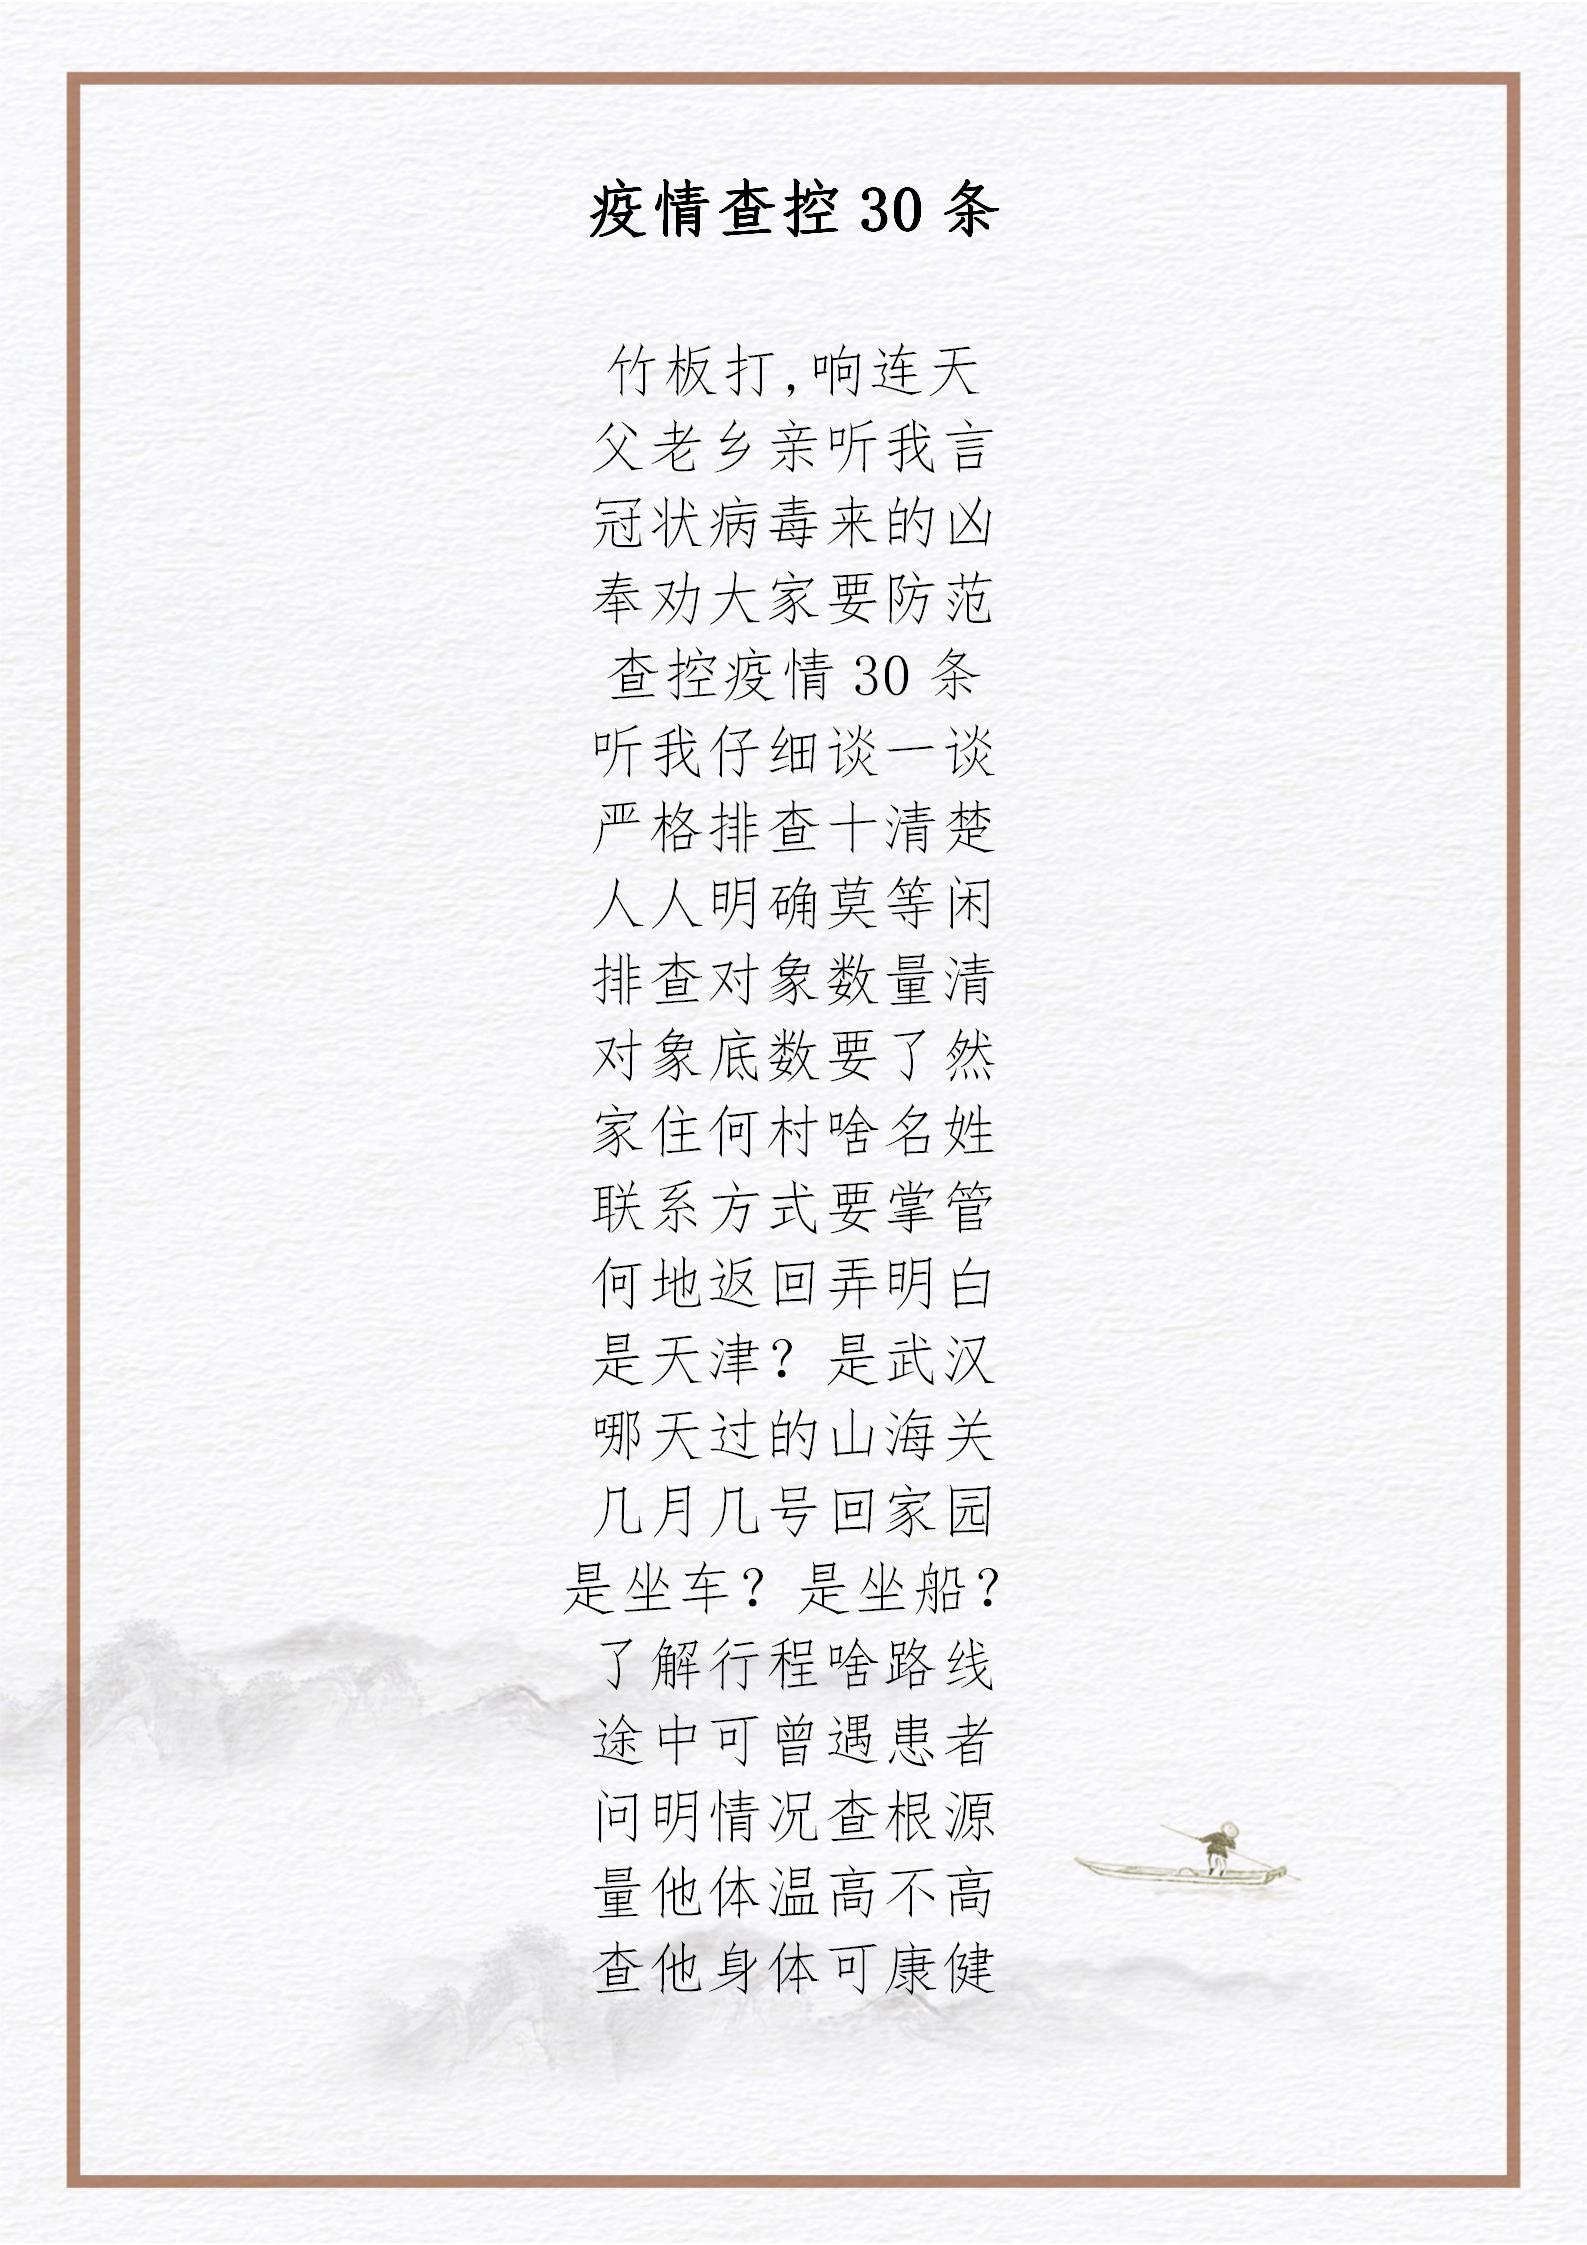 疫情查控30条
竹板打,响连天
父老乡亲听我言
冠状病毒来的凶
奉劝大家要防范
查控疫情30条
听我仔细谈一谈
严格排查十清楚
人人明确莫等闲
排查对象数量清
对象底数要了然
家住何村啥名姓
联系方式要掌管
何地返回弄明白
是天津？是武汉
哪天过的山海关
几月几号回家园
是坐车？是坐船？
了解行程啥路线
途中可曾遇患者
问明情况查根源
量他体温高不高
查他身体可康健